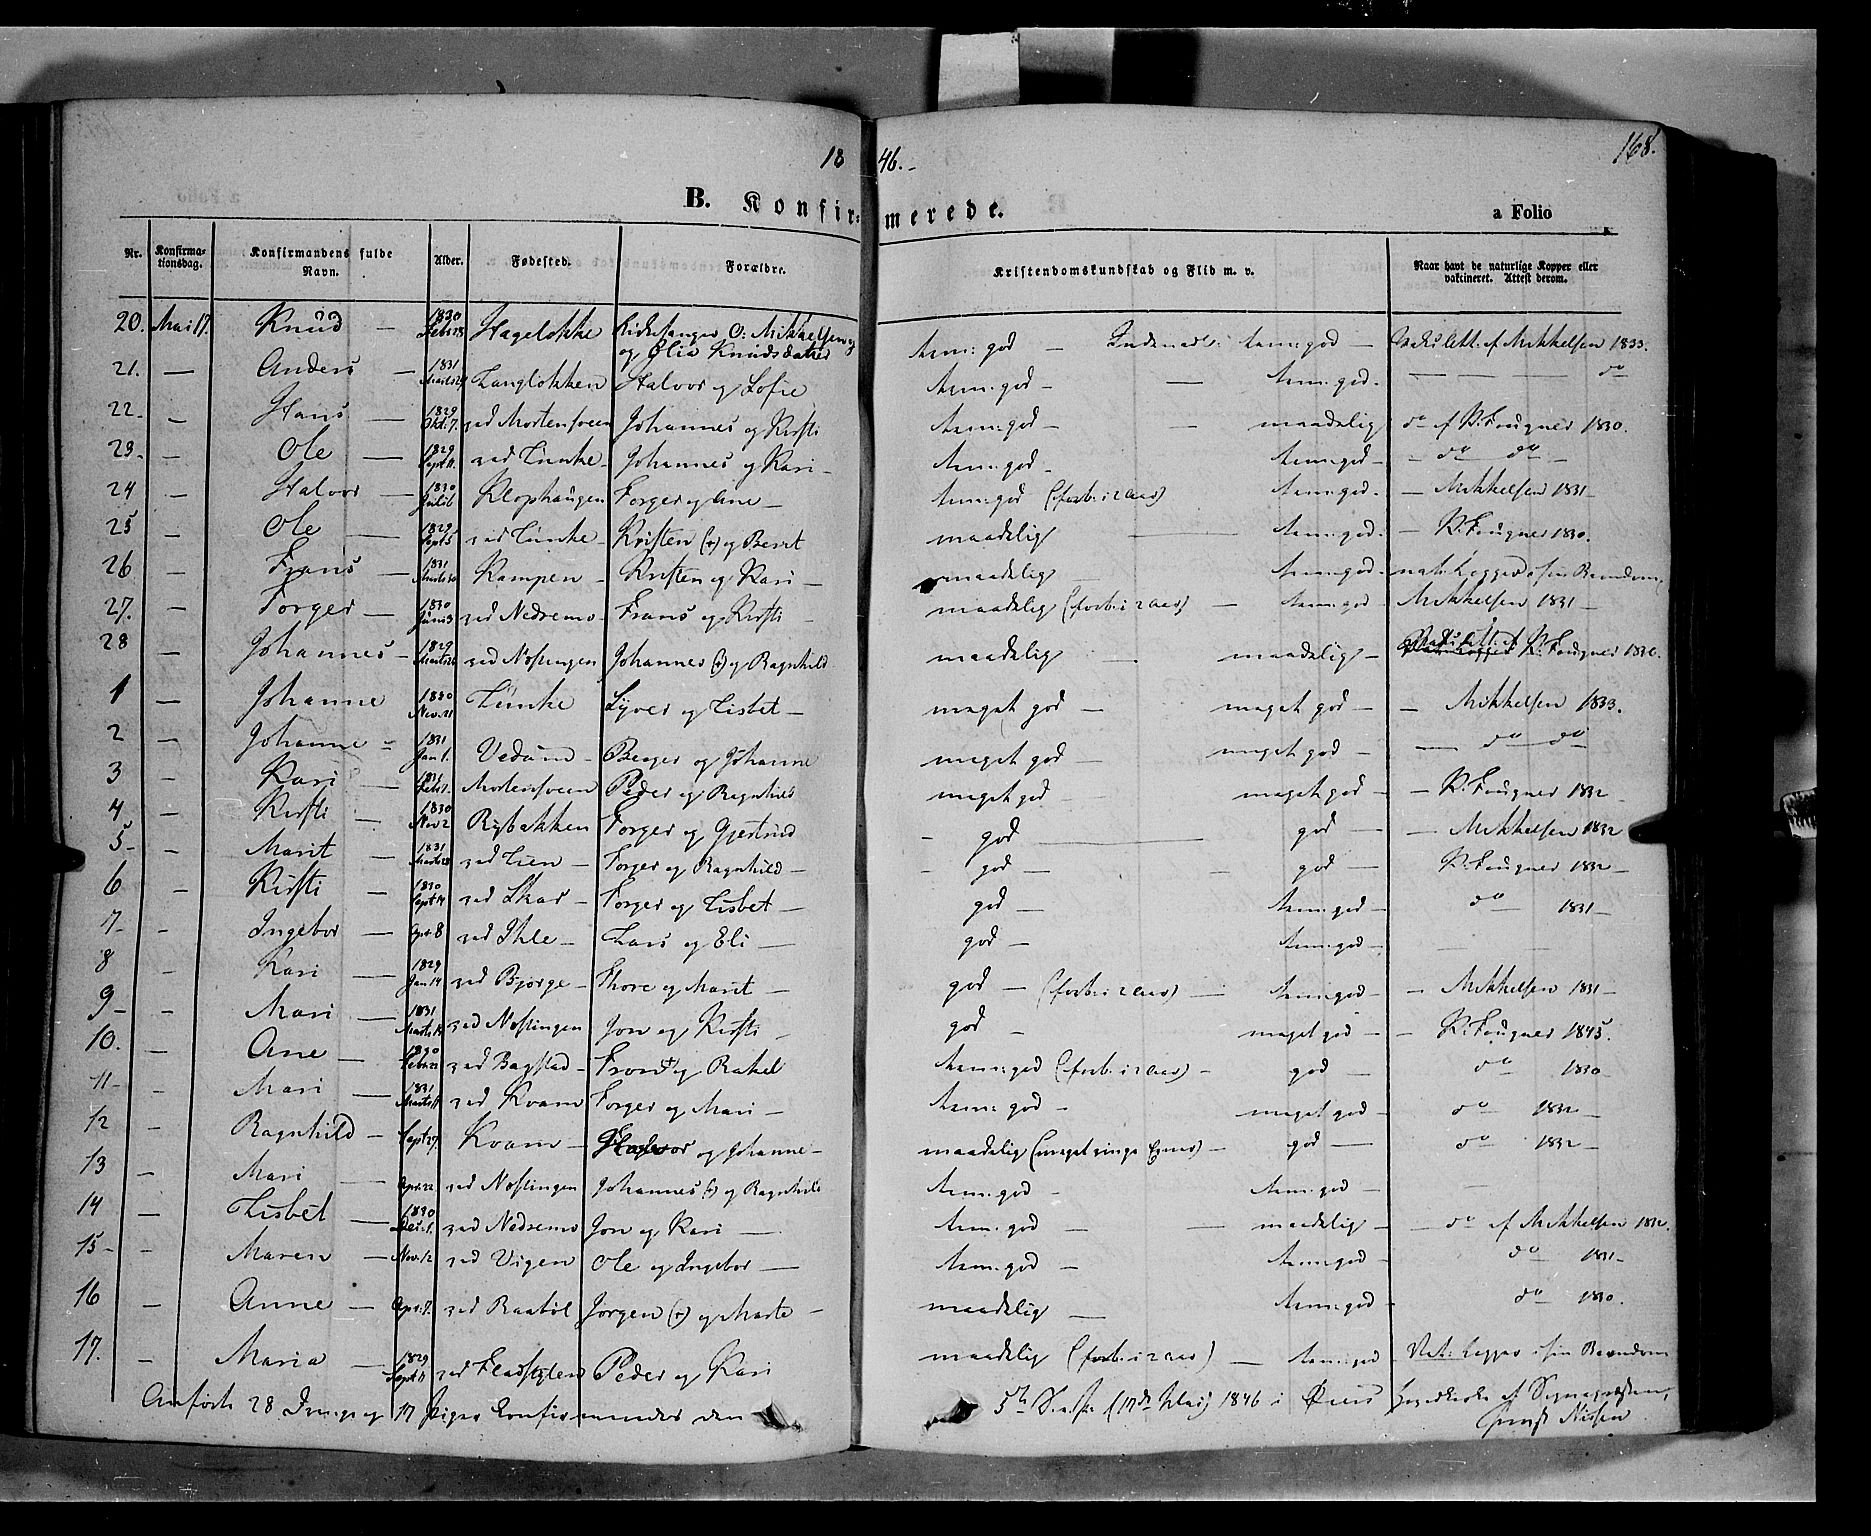 1846.
168.
B. Konfirmerede.
a Folio
Nr. Konfirmationsdag. Konfirmandens fulde Navn. Alder. Fødested. Forældre. Kristendomskundskab og Flid m. v. Naar havt de naturlige Kopper eller vaktineret. Attest derom.
20. Mai 17. Knud — 1830 Febr 28 Hagelokke Kirkesanger O: Mikkelsen og Olia Knudsdatter tem: god — tem: god — Mikkelsen 1833.
21. — Anders — 1831 Langlokken Halvor og Sofie tem: god — — tem: god. — — — do
22. — Hans — 1829 Okt: 7. ved Mortensveen Johannes og Kirsti tem: god — — maadelig do af K. Fougner 1830.
23. — Ole — 1829 Sept 11. ved Lunke — Johannes og Kari — tem: god — tem: god — — do do —
24 — Halvor — 1830 Juli 6 Klophaugen Torger og Ane — tem: god (forb: i 2 Aar) tem: god. — Mikkelsen 1831 —
25 — Ole — 1829 Sept 5 ved Lunke — Kristen (+) og Berit maadelig — tem: god. — K. Fougner 1830.
26 — Frans — 1831 Marts 30 Kampen — Kristen og Kari — maadelig — tem: god — nat: Kopper i sin Barndom
27. — Torger — 1830 Juni 3 ved Nedremo — Frans og Kirsti — maadelig (forb: i 2 Aar) — tem: god Mikkelsen 1831 —
28 Johannes — 1829 ved Nostingen Johannes (+) og Ragnhild maadelig — maadelig — K. Fougner
1 — Johanne 1830 Nov. 21 Lunke Syver og Lisbet — maget god — maget god — — Mikkelsen 1833.
2 — Johanne — 1831 Jan 1. Vedum — Berger og Johanne maget god — maget god — — do do
3 — Kari 1831 Febr 1. Mortensveen Peder og Ragnhild maget god — maget god — — K. Fougner 1832
4 — Kirsti — 1830 Nov 2 Rybakken Torger og Gjertrud — god — god — — Mikkelsen 1832
5 — — Marit — 1831 Marts 28 ved Lien — Torger og Ragnhild — — god — — god — K. Fougner 1832 —
6 — Kirsti — 1830 Sept 14 ved Skar — Torger og Lisbet — god — tem: god — do 1831 —
7 — — Ingebor — Apr 8 ved Ihle — Lars og Eli — god — tem: god —
8 — Kari — 1829 Jan 14 ved Bjørge — Thore og Marit — god — (forb: i 2 Aar) — tem: god — — Mikkelsen 1831 —
9 — — Mari — 1831 ved Nostingen Jon og Kirsti — god — maget god — — K. Fougner 1845.
10. — Ane — 1830 Febr 22 ved Bagstad — Trond + og Rakel tem: god (forb: i 2 Aar) — god — do 1830 —
11 — — Mari — 1831 ved Kvam Torger og Mari — tem: god — maget god — do 1832 —
12 — Ragnhild — Sept 27. Kvam — og Johanne — maadelig (maget ringe Evner) — god — do 1832 —
13 — Mari — Apr. 22 ved Nostingen Johannes (+) og Ragnhild tem: god — tem: god — —
14 — Lisbet — 1830 Dec: 1. ved Nedremo Jon og Kari — tem: god — — maadelig — — do af Mikkelsen 1832.
15 — — Maren — Nov. 12 ved Vigen Ole og Ingebor — tem: god — tem: god — do 1831 —
16 — Anne — Apr. 7. ved Raabøl Jørgen (+) og Marte — maadelig — tem: god — do 1830.
17. — Maria — 1829 Sept 11 Peder og Kari maadelig (forb: i 2 Aar) — tem: god — Nat: Kopper i sin Barndom
Anførte 28 Drenge og 17 Piger konfirmeredes den 5te S. e. P. (17de Mai) 1846 i af Sognepræsten, Nissen